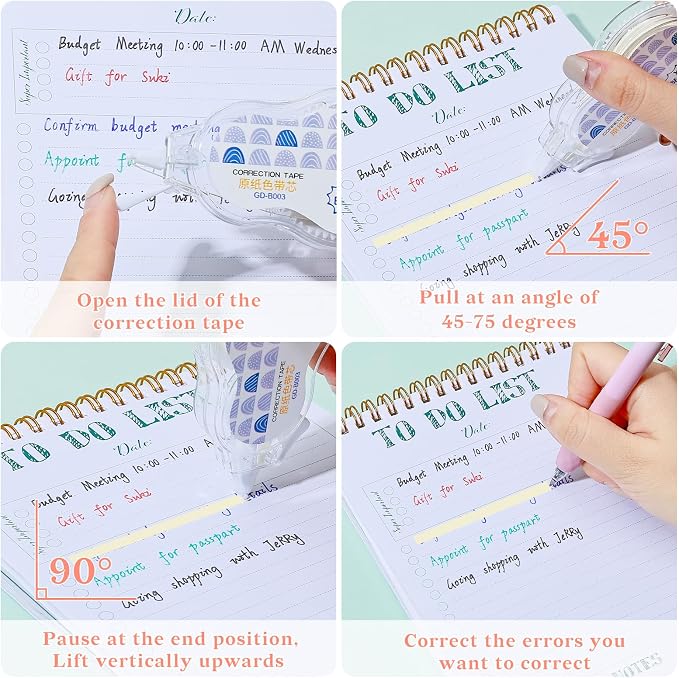 Date:
Budget Meeting 10:00-11:00 AM Wednes
Super Important
Gift for Suki
Confirm budget meeting
Appoint fo
Going shopping with
CORRECTION TAPE
原纸色带芯
GD-B003
Open the lid of the
correction tape
TO DO LIST
Date:
Budget Meeting 10:00-11:00 AM Wed
Gift for Suki
Appoint for passpart
Going shopping with JeRRy
45°
Pull at an angle of
45-75 degrees
TO DO LIST
Date:
Budget Meeting 10:00-11:00 AM
Gift for Suki
Appoint for passpart
Going shopping with JeRRy
CORRECTION TAPE
原纸色带芯
GD-B003
90°
Pause at the end position,
Lift vertically upwards
TO DO LIST
Date:
Budget Meeting 10:00-11:00 AM Wednes
Super Important
Gift for Suki
Appoint for passpart
Going shopping with JeRRy
NOTES
Correct the errors you
want to correct